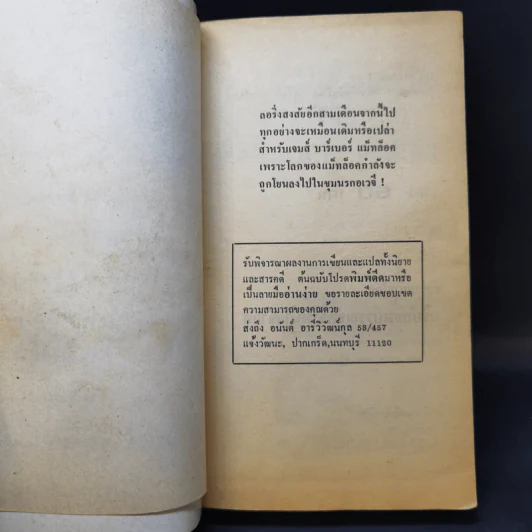 ลอริ่งสงสัยอีกสามเดือนจากนี้ไป
ทุกอย่างจะเหมือนเดิมหรือเปล่า
สำหรับเจมส์ บาร์เบอร์ แม็ทล็อค
เพราะโลกของแม็ทล็อคกำลังจะ
ถูกโยนลงไปในขุมนรกอเวจี !
รับพิจารณาผลงานการเขียนและแปลทั้งนิยาย
และสารคดี ต้นฉบับโปรดพิมพ์ดีดมาหรือ
เป็นลายมืออ่านง่าย ขอรายละเอียดขอบเขต
ความสามารถของคุณด้วย
ส่งถึง อนันต์ อารีวิวัฒน์กุล 58/457
แจ้งวัฒนะ, ปากเกร็ด,นนทบุรี 11120